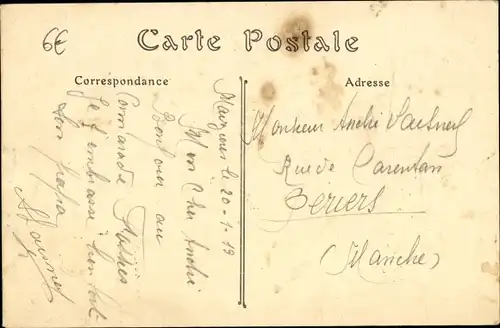 6€
Carte Postale
Correspondance
Adresse
le 20-1-19
Mon Cher André
Bonjour au
Camarade
Je t'embrasse bien fort
Ton papa
Monsieur André
Rue de Carentan
Periers
(Manche)